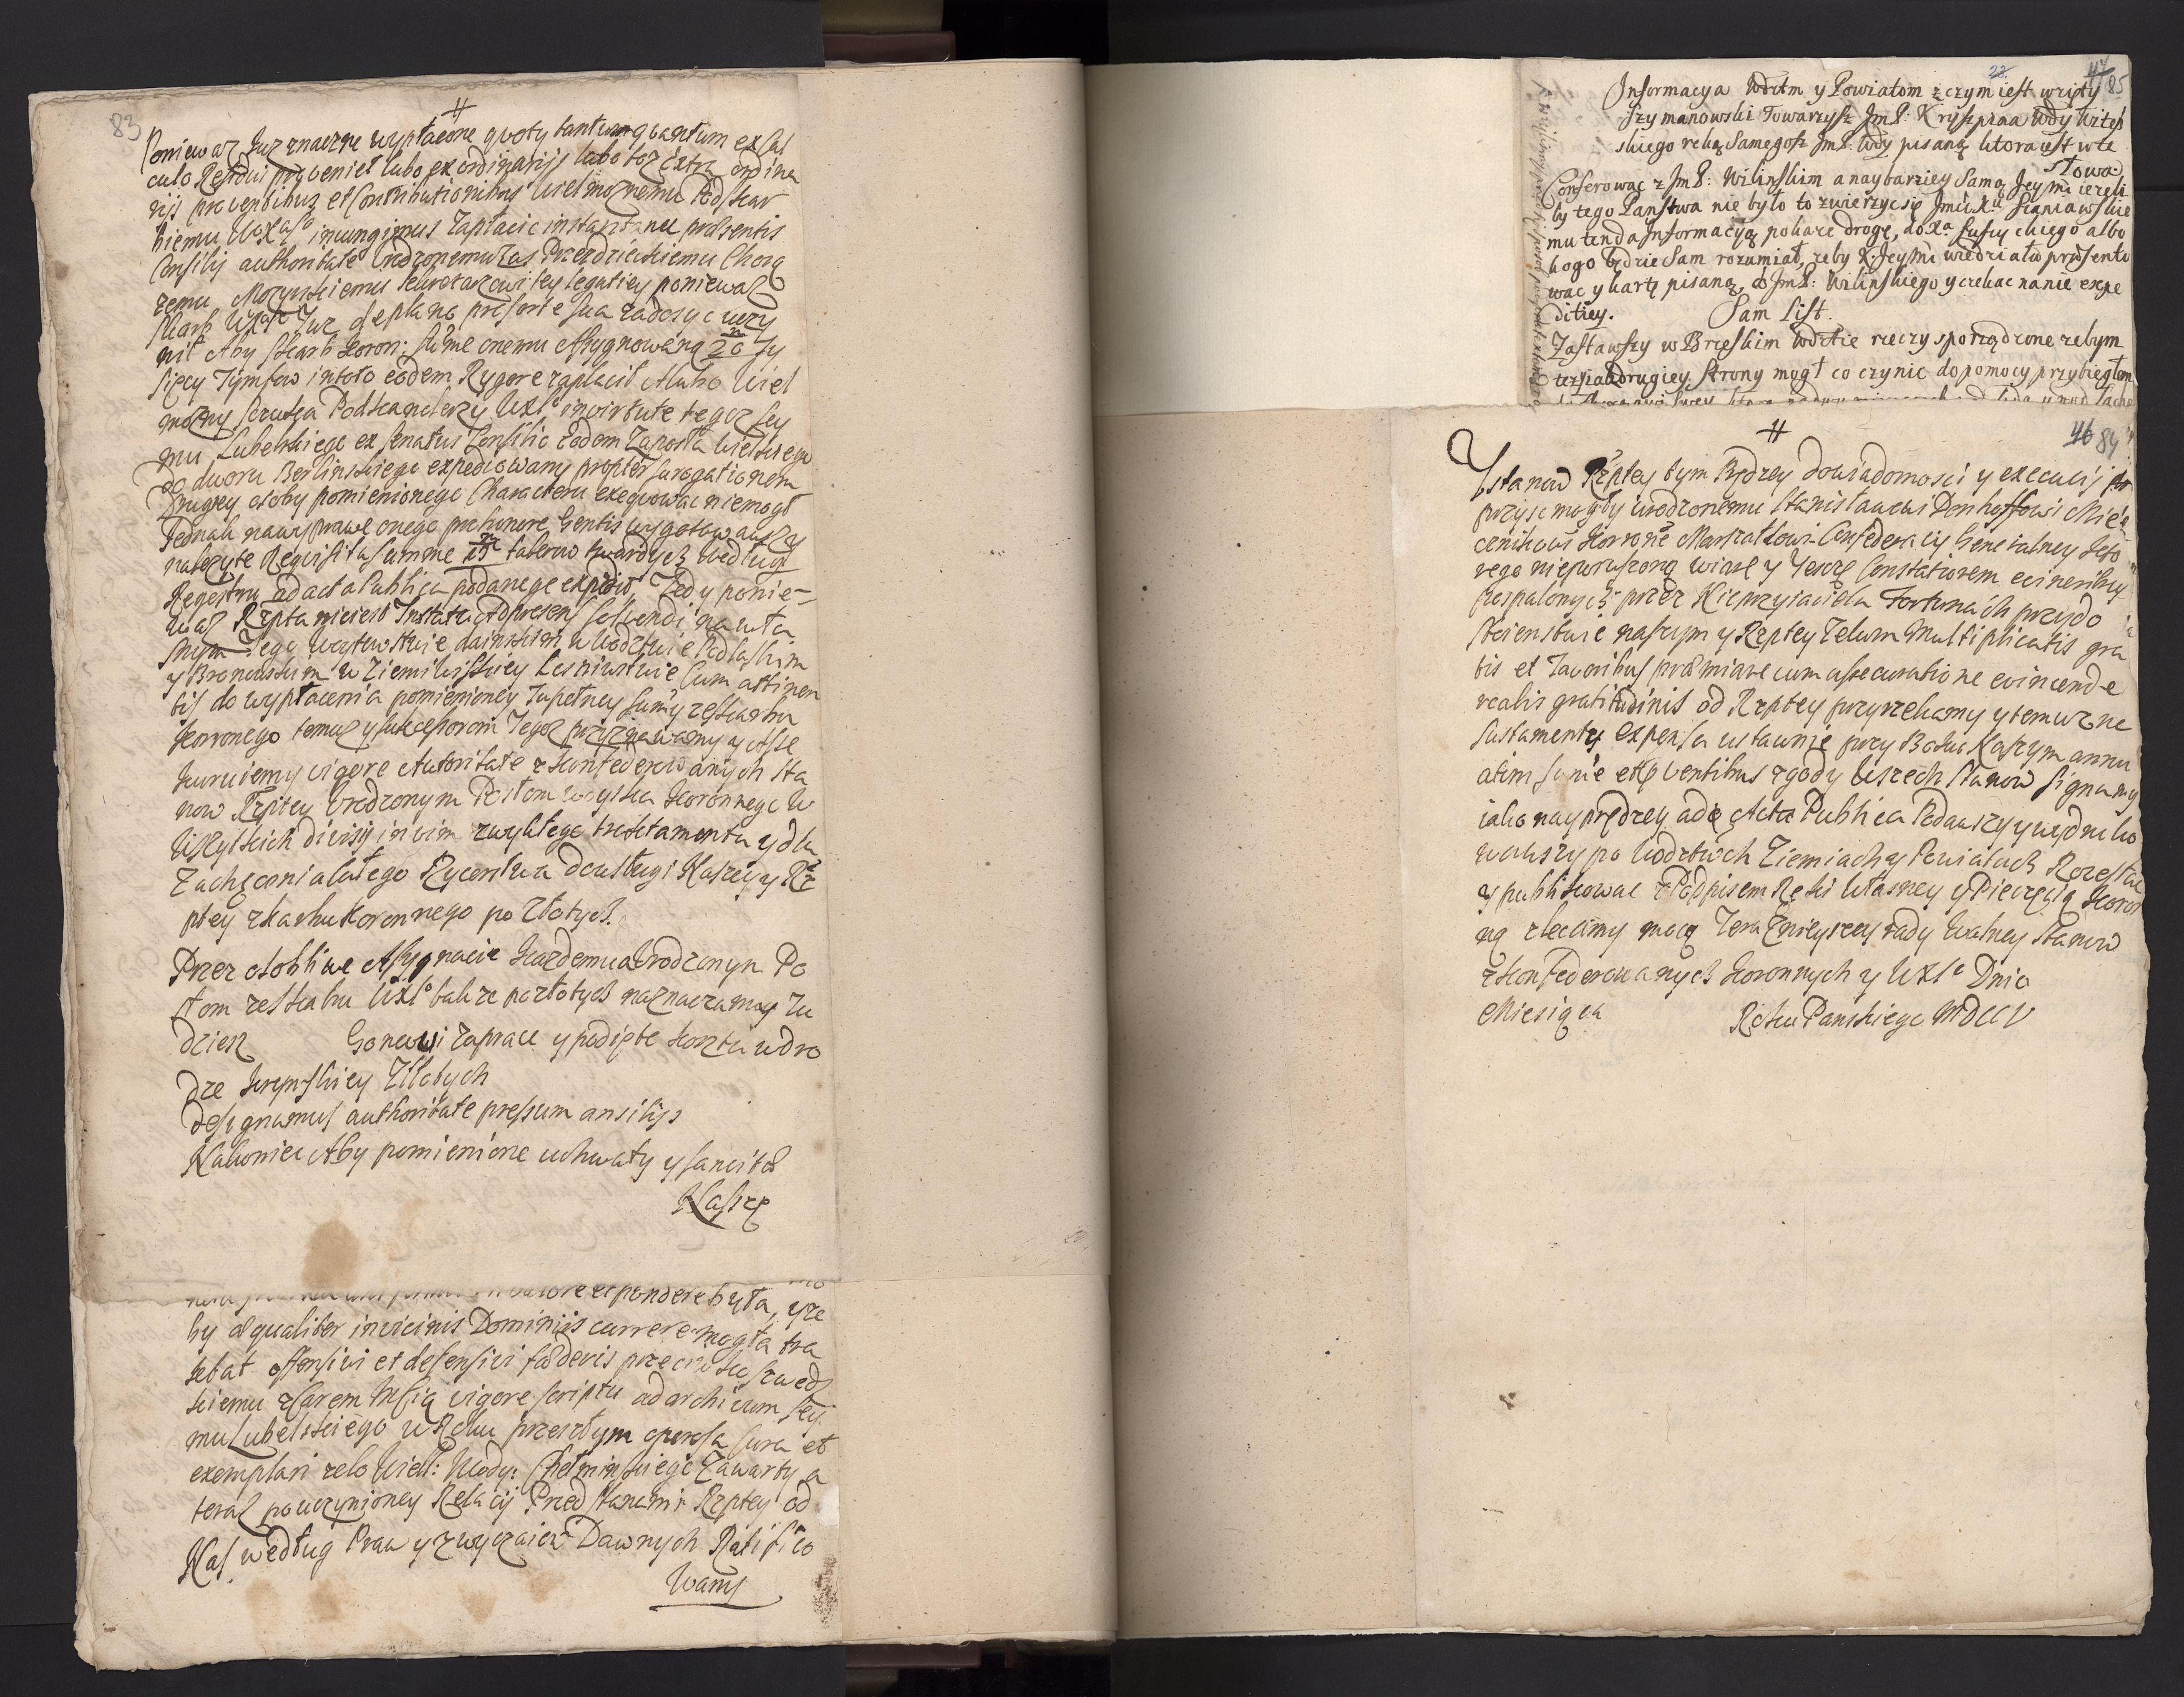 83
#
Poniewaz Juz znaczne wypłacone quoty tantum quantum ex fis
culo Resdui proveniet lubo ex ordinarijs lubo toz extra ordina
rijs proventibus et Contributionibus Wielmoznemu Podskar
biemu WXLo iniungimus zapłacic instantanee praesentis
Consilij authoritate Urodzonemu zas Przezdzieckiemu Chorą
zemu Mozyrskiemu Sekretarzowi tey legatiey poniewaz
Skarb WXLo Juz de plano pro sorte sua zadosyc uczy
nił Aby Skarb Koron: Summe onemu Assygnowaną 20 Ty
sięcy Tymfow in toto eodem Rygore zapłacił A lubo Wiel
mozny Szczuka Podkanclerzy WXLo in virtute tegoz Sey
mu Lubelskiego ex Senatus Consilio eodem Za posła Wielkiego
do dworu Berlinskiego expediowany propter surogationem
Drugiey osoby pomienionego Characteru exequowac niemogł
Jednak na wyprawe onego pro honore Gentis wygotowawszy
nalezyte Requisita Summe 15 talerow twardych według
Regestru ad acta Publica podanego expedio, Tedy ponie=
waz Rzpta nie iest In statu ad praesens solvendi na wła
snym Jego Woytowstwie dainskim w Wodztwie Podlaskim
y Bronowskim w Ziemi Wiskiey Lesniwstwie Cum attinen
tijs do wypłacenia pomienioney zupełney sumy ze skarbu
Koronnego temuz y sukcessorom Jego przyznawamy y Asse
kuruiemy vigore Autoritate zkonfederowanych Sta
now Rzptey Urodzonym Posłom woyska Koronnego W
Wszystkich divisij in vim zwykłego tractamentu y dla
Zachęcenia całego Rycerstwa do usługi Naszey y Rz
ptey z karbu Koronnego po złotych.
Przez osobliwe Assygnacie Kazdemu a Urodzonym Po
słom ze skarbu WXLo takze po złotych naznaczamy Zu
dzien Gonowi za prace y podięte koszta w dro
dze Krymskiey Złotych
Designamus authoritate pressum ansilijs
Nakoniec Aby pomienione uchwały y sancita
Nasze
valore et pondere była, y ze
by aequaliter in vicinis Dominijs currere mogła tra
ktat offensivi et defensivi faederis przeciwko Szwedz
kiemu z Carem Mscią vigore scriptu ad archivum Sey
mu Lubelskiego w Roku przeszłym operosa cura et
exemplari zelo Wiel: Wody: Chełminskiego Zawarty a
teraz po uczynioney Relacij Przed Stanami Rzptey od
Nas według Praw y zwyczaiow Dawnych Ratifico
wany
23
47 85
Informacya Wdztm y Powiatom z czym iest wzięty
Szymanowski Towarzysz JmP: Kryszpina Wdy Witeb
skiego ręką Samegosz JmP: Wdy pisaną ktora iest w te
Słowa
Conferowac z JmP: Wilinskim a naybarziey Samą Jeymi iezeli
by tego Panstwa nie było to zwierzyc się Jmci Xu Staniawskie
mu ten da Informacyą pokaze drogę, do Xa Sufczickiego albo
kogo będzie Sam rozumiał, zeby X: Jeymi wiedziało praesento
wac y kartę pisaną, do JmP: Wilinskiego y czekac na nie expe
ditiey. Sam List.
Zastawszy w Brzeskim Wdztie rzeczy sporządzone zebym
tesz iak z drugiey Strony mogł co czynic do pomocy przybiegłem
46 84
#
Ystanow Rzptey tym Prędzey do wiadomosci y execucij
przysc mogły urodzonemu Stanisławowi Donhoffowi Mie
cznikowi Koronne Marszałkowi Confederacij Generalney Kto
rego nieporuszoną wiarę y Jescze Constatiorem ex cineribus
pospalonych przez Nieprzyiaciela Fortunach przy do
stoienstwie naszym y Rzptey Zelum Multiplicatis gra
tis et Favoribus praemiare cum assecuratione evincendae
realis gratitudinis od Rzptey przyrzekamy y temuz na
sustamenty expensa ustawnie przy Boku Naszym annu
atim Sumę ex proventibus zgody Wszech Stanow signamy
iako nayprędzey ade Acta Publica Podawszy y wydruko
wawszy po Wodztwach Ziemiach y Powiatach Rozesłac
y publikowac z Podpisem Ręki Własney y Pieczęcią Koron
ną zlecamy mocą Teraznieyszey rady Walney Stanow
zkonfederowanych Koronnych y WXLo Dnia
Miesiąca Roku Panskiego MDCCV